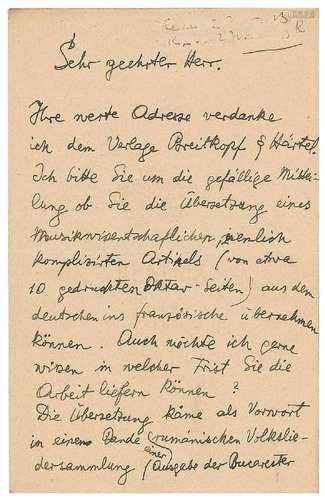 Sehr geehrter Herr.
Ihre werte Adresse verdanke
ich dem Verlage Breitkopf & Härtel.
Ich bitte Sie um die gefällige Mittei-
lung ob Sie die Übersetzung eines
musikwissentschaflichen, ziemlich
komplizirten Artikels (von etwa
10 gedruckten Oktav-Seiten) aus dem
deutschen ins französische übernehmen
können. Auch möchte ich gerne
wissen in welcher Frist Sie die
Arbeit liefern können?
Die Übersetzung käme als Vorwort
in einem Bande (rumänischen Volkslie-
dersammlung (einer Ausgabe der Bucarester